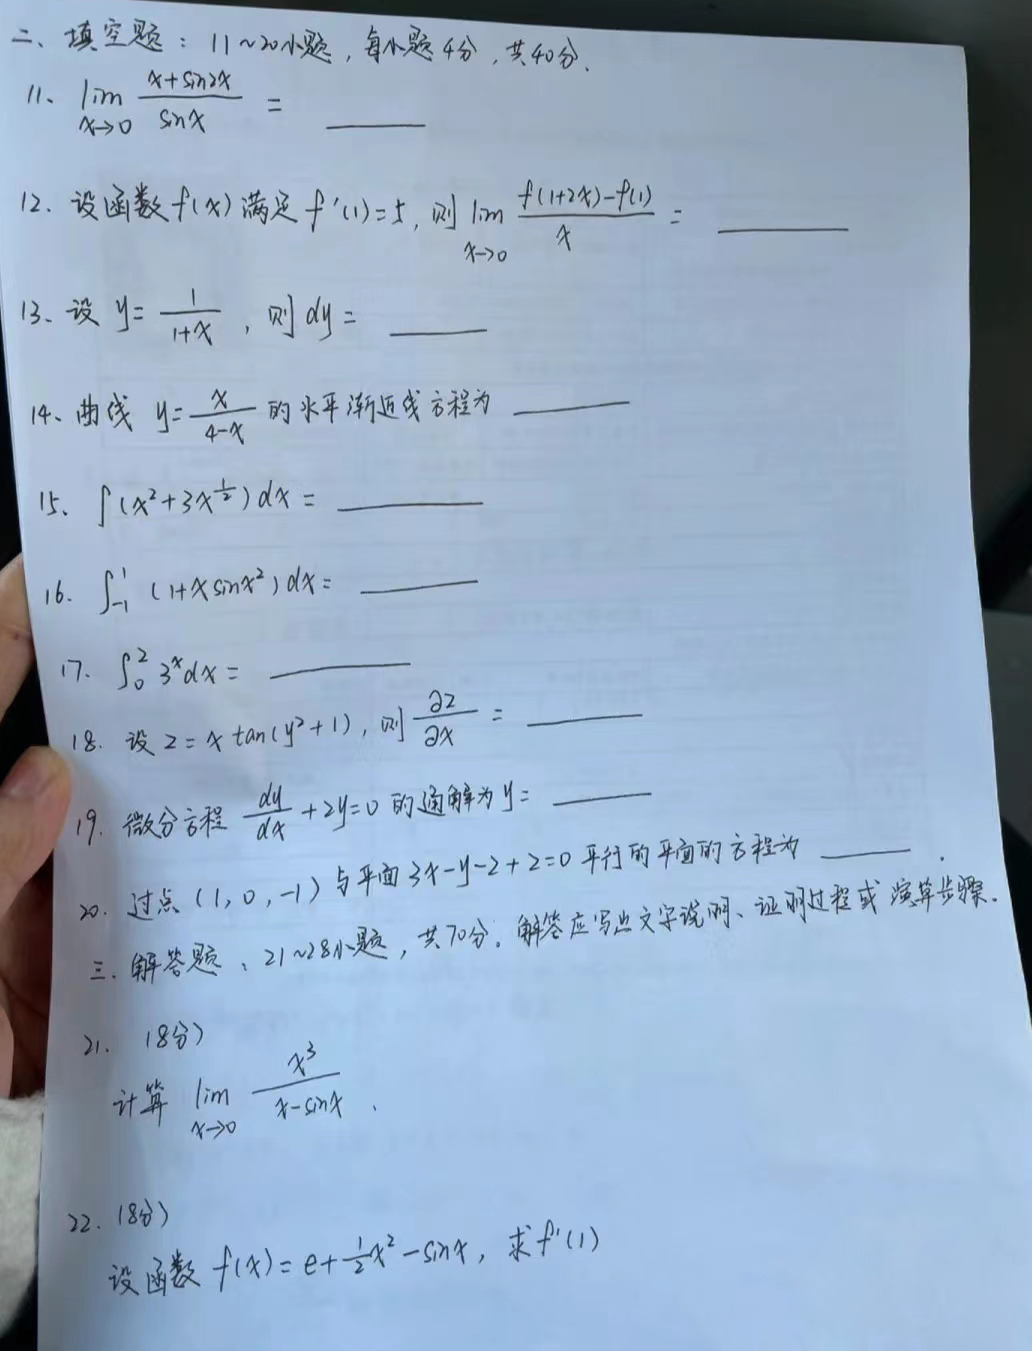 二、填空题：11~20小题，每小题4分，共40分.
11、lim x→0 (x+sin2x)/sinx = ____
12、设函数f(x)满足f'(1)=5, 则 lim x→0 (f(1+2x)-f(1))/x = ____
13、设 y= 1/(1+x) , 则 dy = ____
14、曲线 y= x/(4-x) 的水平渐近线方程为 ____
15、∫(x²+3x^(1/2))dx = ____
16. ∫₋₁¹ (1+xsinx²)dx= ____
17. ∫₀² 3ˣdx= ____
18. 设 z=x tan(y²+1), 则 ∂z/∂x = ____
19. 微分方程 dy/dx +2y=0 的通解为 y= ____
20. 过点 (1,0,-1) 与平面 3x-y-z+2=0 平行的平面的方程为 ____.
三. 解答题：21~28小题，共70分。解答应写出文字说明、证明过程或演算步骤.
21. (8分)
计算 lim x→0 x³/(x-sinx).
22. (8分)
设函数 f(x)=e+½x²-sinx, 求f'(1)